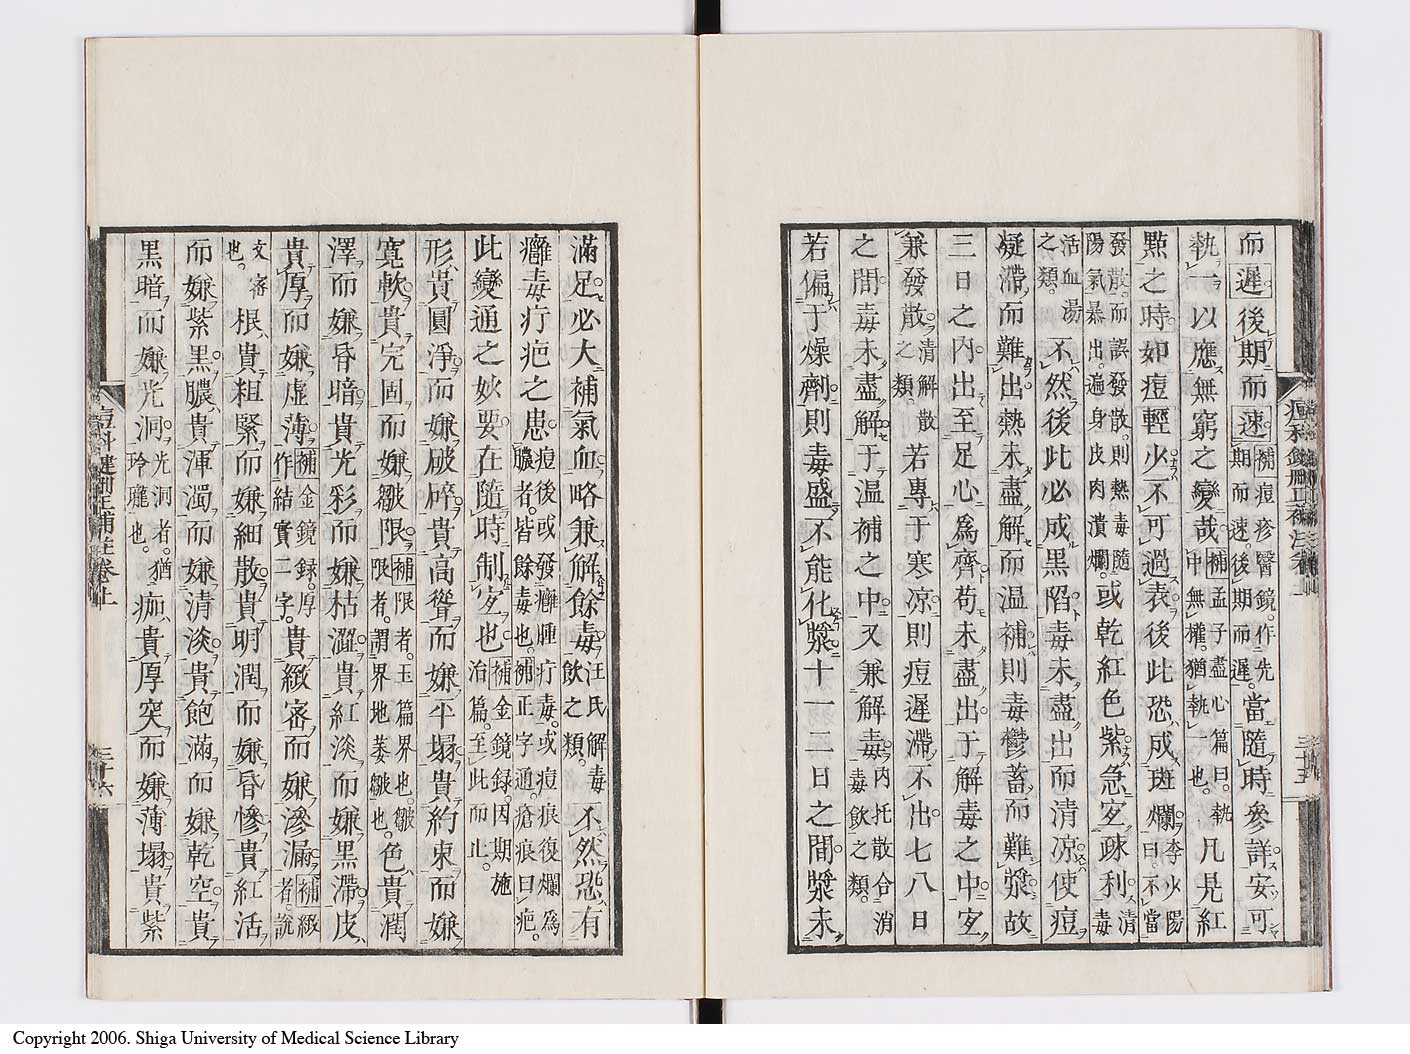 而遲後期而速補痘疹醫鏡作先期而速後期而遲當隨時參詳安可
執一以應無窮之變哉補孟子盡心篇曰執中無權猶執一也凡見紅
點之時如痘輕少不可過表後此恐成斑爛李少陽曰不當
發散而誤發散則熱毒隨陽氣暴出遍身皮肉潰爛或乾紅色紫急宜疎利清毒
活血湯之類不然後此必成黑陷毒未盡出而清凉使痘
凝滯而難出熱未盡解而温補則毒鬱蓄而難漿故
三日之内出至足心爲齊苟未盡出于解毒之中宜
兼發散清解散之類若專于寒凉則痘遲滯不出七八日
之間毒未盡解于温補之中又兼解毒内托散合消毒飲之類
若偏于燥劑則毒盛不能化漿十一二日之間漿未
三十五
滿足必大補氣血略兼解餘毒汪氏解毒飲之類不然恐有
癰毒疔疤之患痘後或發癰腫疔毒或痘痕復爛爲膿者皆餘毒也補正字通瘡痕曰疤
此變通之妙要在隨時制宜也補金鏡録因期施治篇至此而止
形貴圓淨而嫌破碎貴高聳而嫌平塌貴約束而嫌
寬軟貴完固而嫌皺限補限者玉篇界也皺限者謂界地萎皺也色貴潤
澤而嫌昏暗貴光彩而嫌枯澀貴紅淡而嫌黑滯皮
貴厚而嫌虛薄補金鏡録厚作結實二字貴緻密而嫌滲漏補緻者說
文密也根貴粗緊而嫌細散貴明潤而嫌昏慘貴紅活
而嫌紫黑膿貴渾濁而嫌清淡貴飽滿而嫌乾空貴
黑暗而嫌光洞光洞者猶玲瓏也痂貴厚突而嫌薄塌貴紫
三十六
Copyright 2006. Shiga University of Medical Science Library